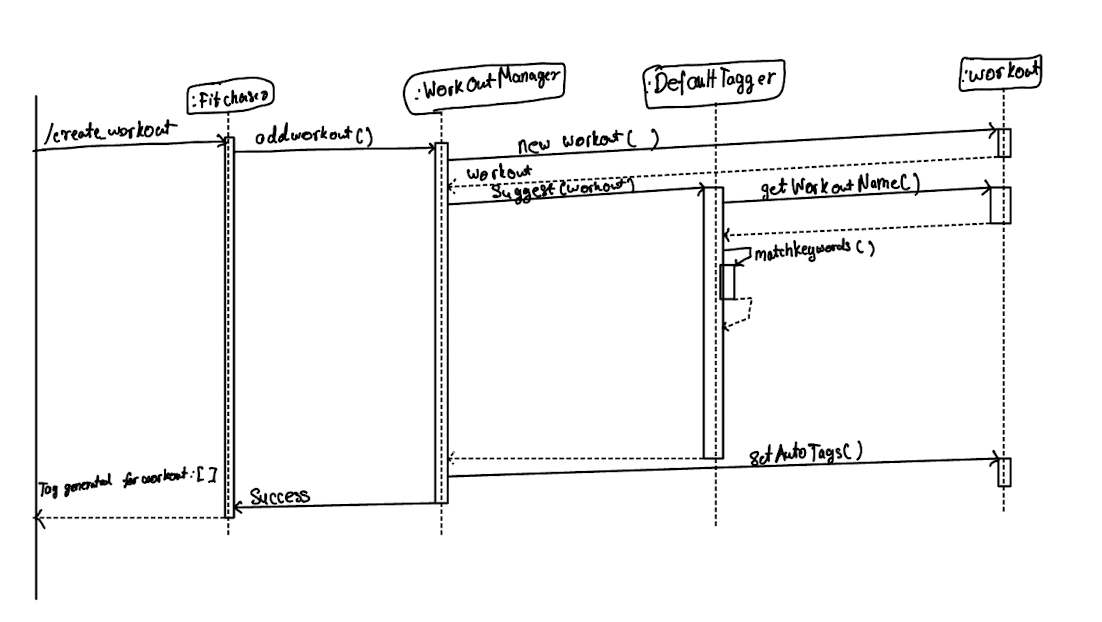 :Fitchaser
:WorkOutManager
:DefaultTagger
:workout
/create_workout
addworkout()
new workout( )
workout
suggest(workout)
getWorkoutName()
matchkeywords()
setAutoTags()
Tag generated for workout:[]
Success